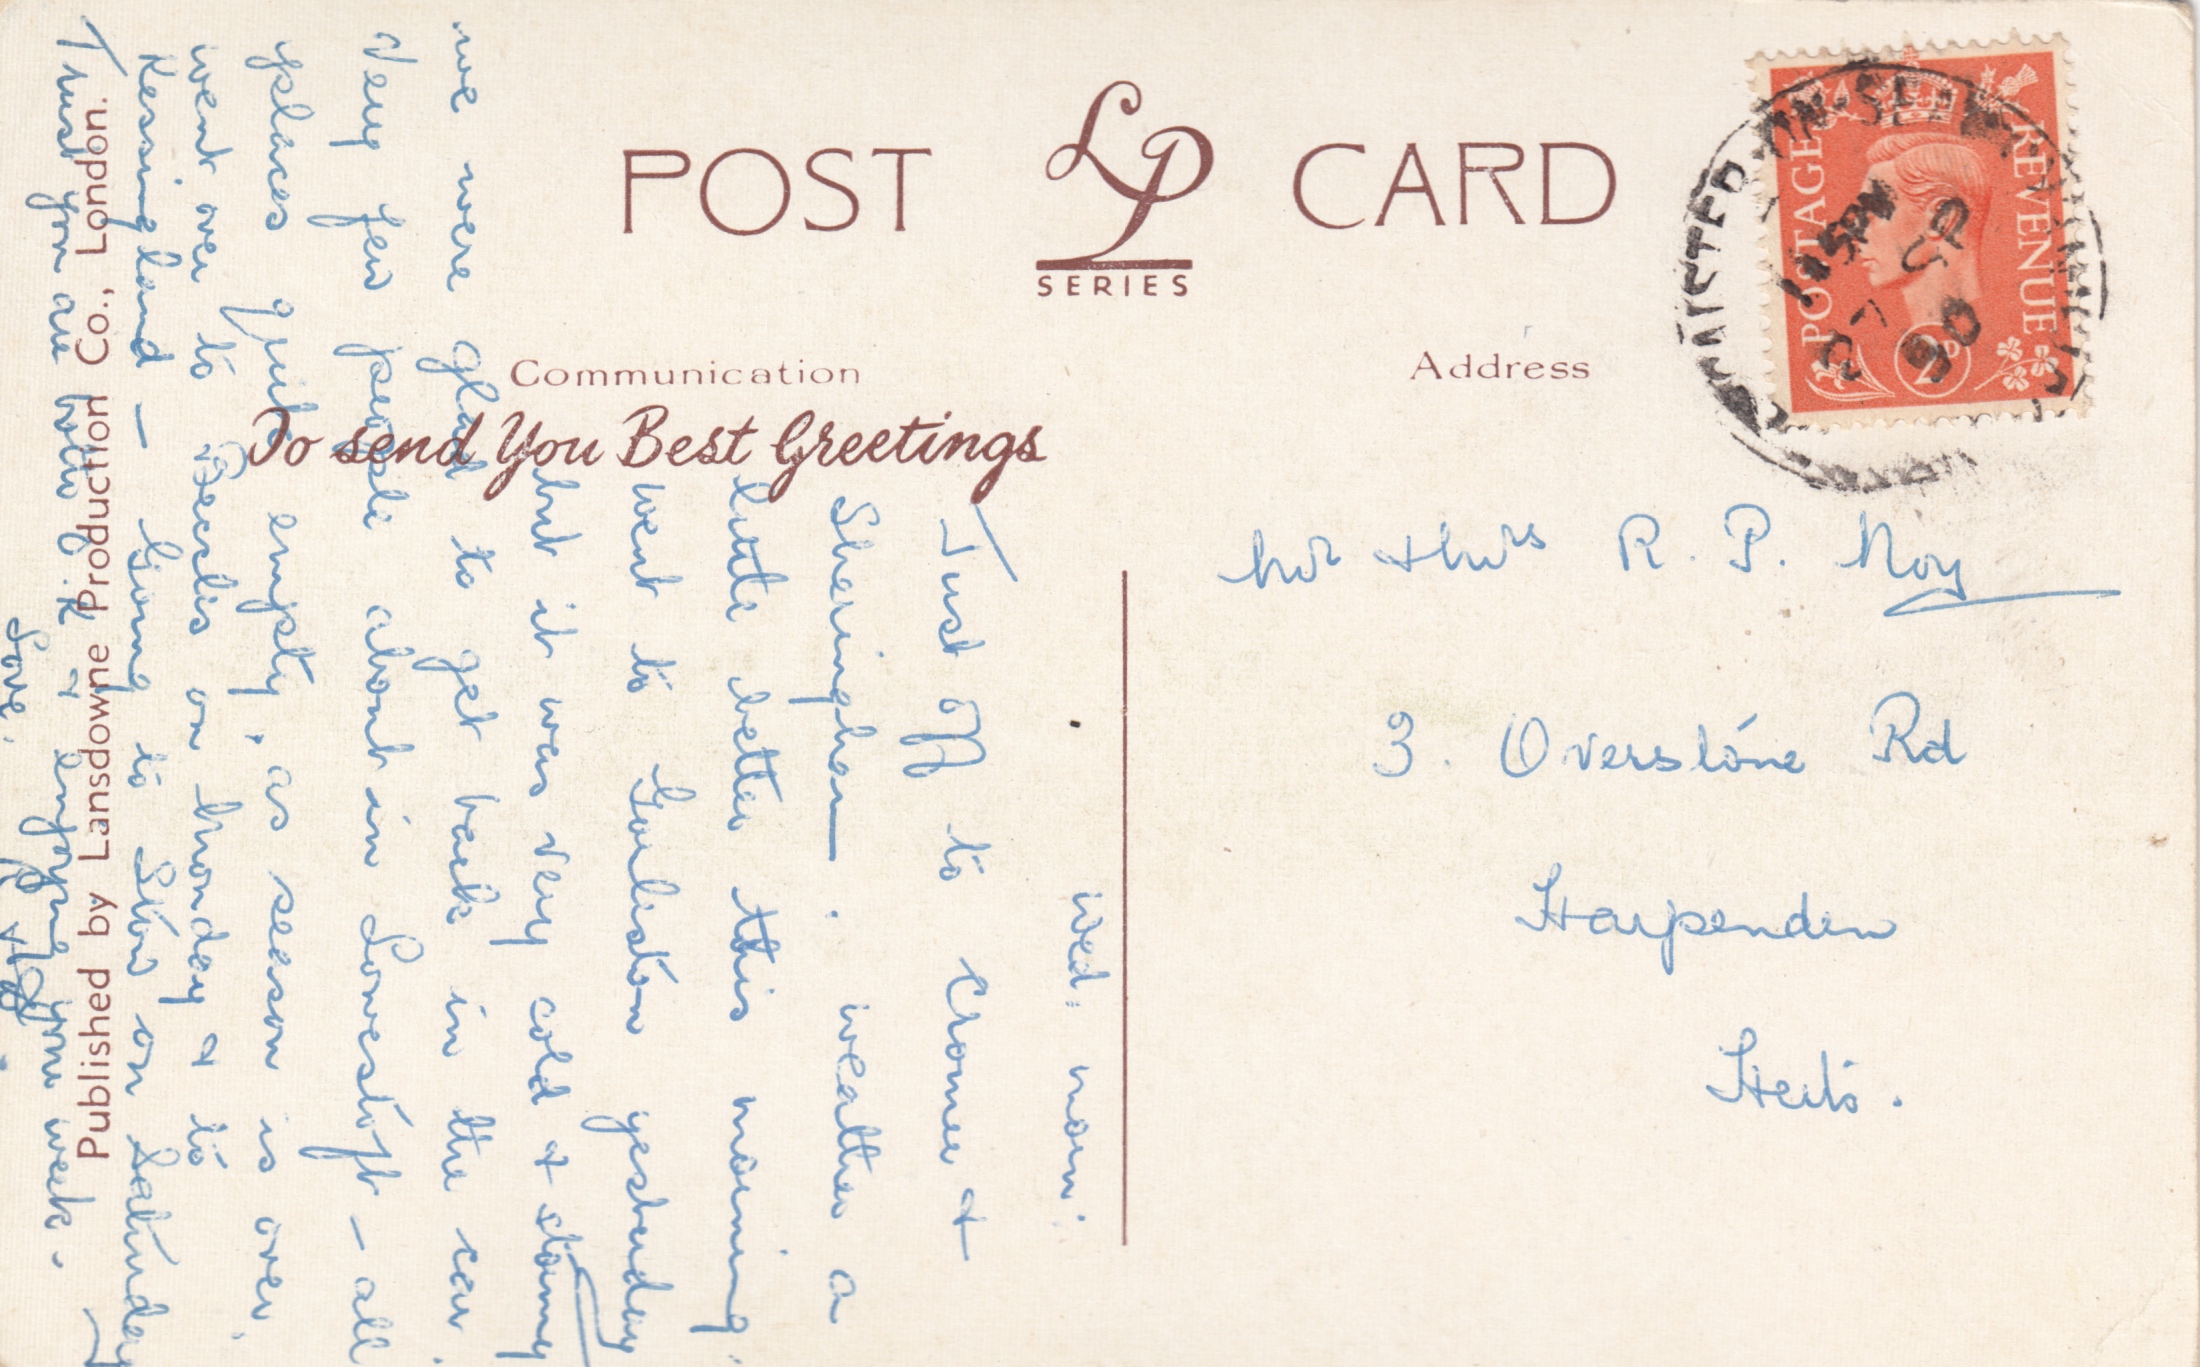 POST CARD
LP
SERIES
Communication
Address
To send You Best Greetings
POSTAGE
REVENUE
2D
ON-SEA
1 15PM
27 SP
50
Mr & Mrs R. P. Noy
3. Overstone Rd
Harpenden
Herts.
Wed. morn.
Just off to Cromer &
Sheringham. weather a
little better this morning.
went to Gorleston yesterday
but it was very cold & stormy
we were glad to get back in the car.
Very few people about in Lowestoft - all
places quite empty, as season is over.
went over to Beccles on Monday & to
Kessingland - Going to Stow on Saturday
Trust you are both O.K & enjoying your week.
Love.
Published by Lansdowne Production Co., London.